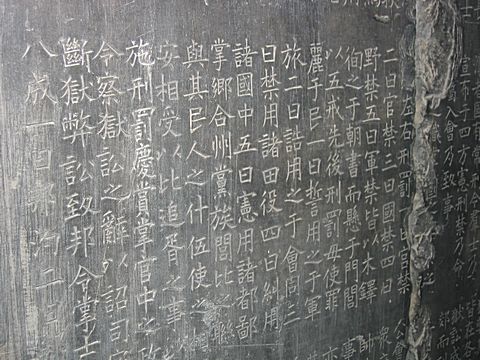 宣布于四方憲刑禁
入會乃致事
左右刑罰一曰宮禁
二曰官禁三曰國禁四曰
野禁五曰軍禁皆以木鐸
徇之于朝書而懸于門閭
以五戒先後刑罰毋使罪
麗于民一曰誓用之于軍
旅二曰誥用之于會同三
曰禁用諸田役四曰糾用
諸國中五曰憲用諸都鄙
掌鄉合州黨族閭比之聯
與其民人之什伍使之
安相受以比追胥之事
施刑罰慶賞掌官中之政
令察獄訟之辭以詔司
斷獄弊訟致邦令掌士
八成一曰邦汋二曰